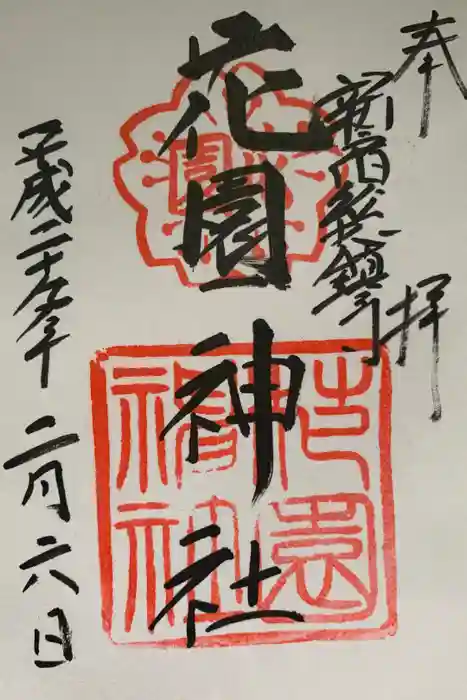 奉拝
新宿総鎮守
花園神社
平成二十九年二月六日
花園神社